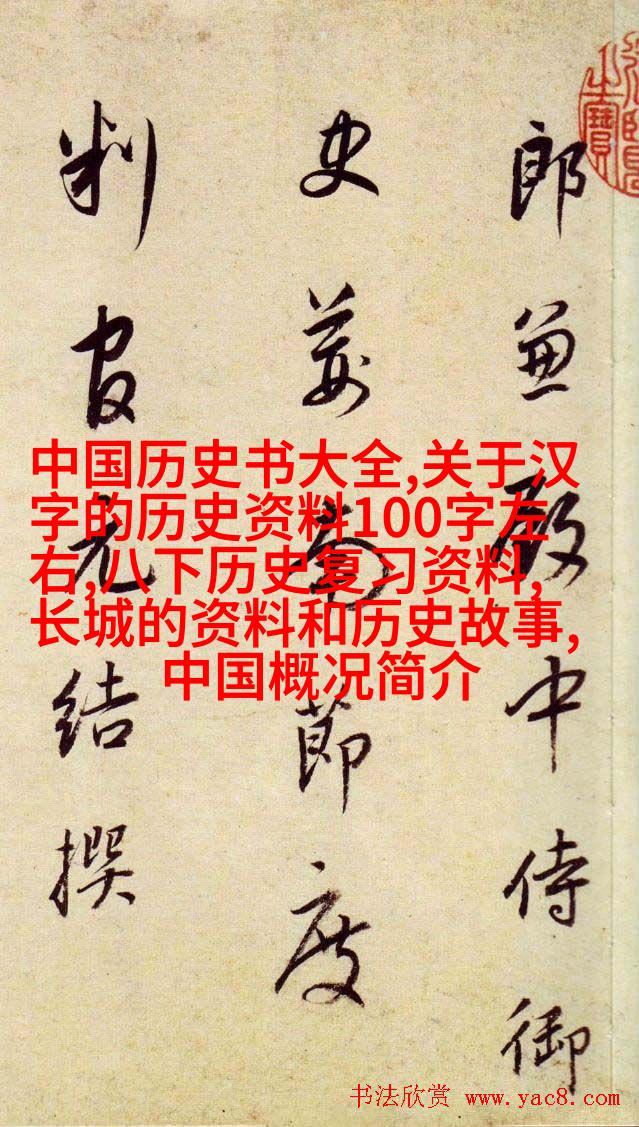 郎兼殿中侍御
史荆南節度
判官元結撰
中国历史书大全,关于汉
字的历史资料100字左
右,八下历史复习资料,
长城的资料和历史故事,
中国概况简介
书法欣赏 www.yac8.com